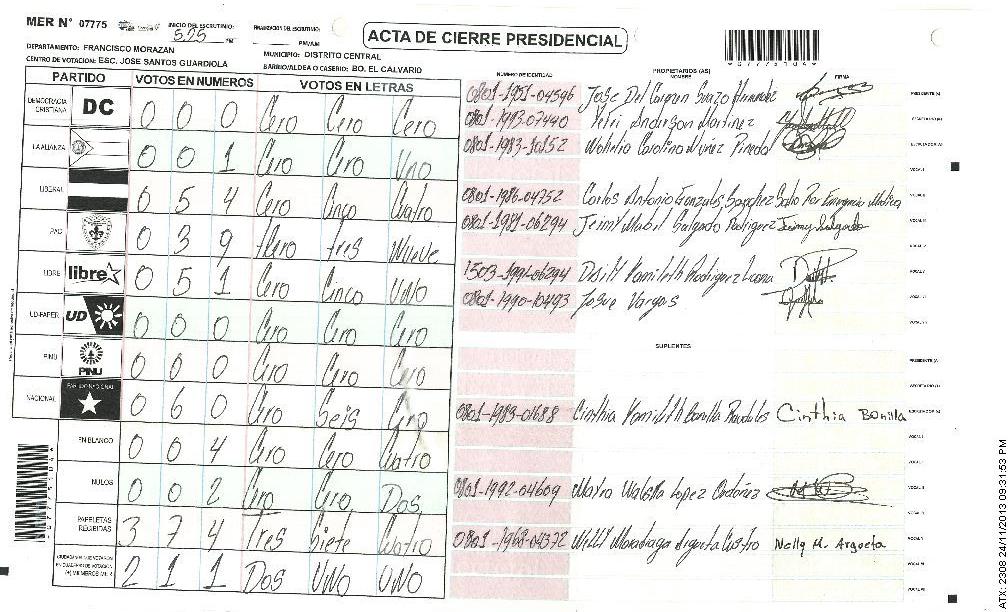 MER N° 07775 INICIO DEL ESCRUTINIO: 5:25 PM FINALIZACION DEL ESCRUTINIO: PM/AM
ACTA DE CIERRE PRESIDENCIAL
DEPARTAMENTO: FRANCISCO MORAZAN MUNICIPIO: DISTRITO CENTRAL
CENTRO DE VOTACION: ESC. JOSE SANTOS GUARDIOLA BARRIO/ALDEA O CASERIO: BO. EL CALVARIO
PARTIDO VOTOS EN NUMEROS VOTOS EN LETRAS
DEMOCRACIA CRISTIANA DC 0 0 0 Cero Cero Cero
LA ALIANZA 0 0 1 Cero Cero Uno
LIBERAL 0 5 4 Cero Cinco Cuatro
PAC 0 3 9 Cero tres Nueve
LIBRE libre 0 5 1 Cero Cinco UNO
UD-FAPER UD 0 0 0 Cero Cero Cero
PINU PINU 0 0 0 Cero Cero Cero
NACIONAL PARTIDO NACIONAL 0 6 0 Cero Seis Cero
EN BLANCO 0 0 4 Cero Cero Cuatro
NULOS 0 0 2 Cero Cero Dos
PAPELETAS RECIBIDAS 3 7 4 Tres Siete Cuatro
CIUDADANOS QUE VOTARON 2 1 1 Dos UNO UNO
NUMERO DE IDENTIDAD PROPIETARIOS (AS) NOMBRE FIRMA
0801-1951-04596 Jose Del Carmen Suazo Hernandez PRESIDENTE (A)
0801-1993-07440 Anderson Martinez SECRETARIO (A)
0801-1983-10152 Carolina Nunez Pineda ESCRUTADOR (A)
VOCAL I
0801-1986-04752 Carlos Antonio Gonzales Sanchez Salio Por Emergencia Medica VOCAL II
0801-1981-06294 Jenny Mabel Salgado Rodriguez Jenny Salgado VOCAL III
VOCAL IV
1503-1991-06294 Rodriguez VOCAL V
0801-1990-10493 Josue Vargas VOCAL VI
VOCAL VII
SUPLENTES
PRESIDENTE (A)
SECRETARIO (A)
0801-1983-01688 Cinthia Yamileth Bonilla Cinthia Bonilla ESCRUTADOR (A)
VOCAL I
VOCAL II
0801-1992-04609 Mayra Lopez Ordoñez VOCAL III
VOCAL IV
0801-1968-04372 Moradiaga Argueta Castro Nelly M. Argueta VOCAL V
VOCAL VI
VOCAL VII
ATX: 2308 24/11/2013 09:31:53 PM